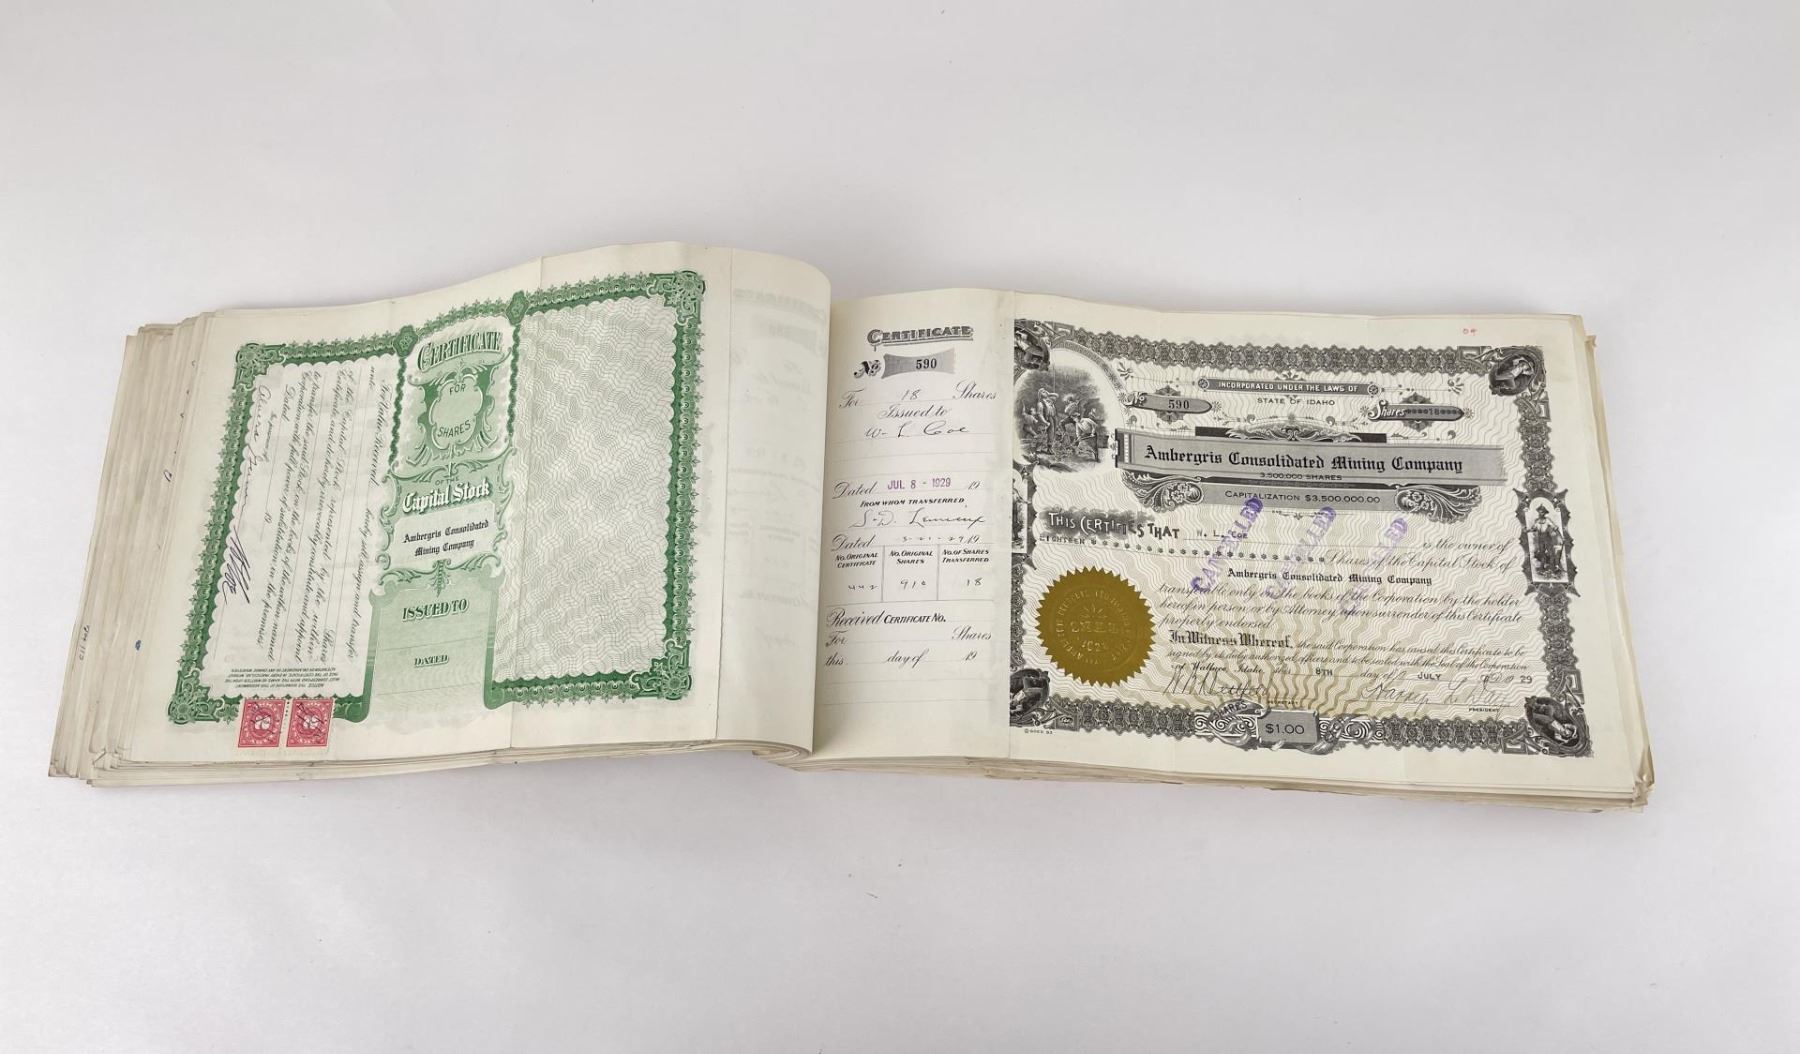 CERTIFICATE
FOR
SHARES
OF THE
Capital Stock
Ambergris Consolidated
Mining Company
ISSUED TO
DATED
For Value Received
hereby sell, assign and transfer
unto
Shares
of the Capital Stock represented by the within
Certificate and do hereby irrevocably constitute and appoint
to transfer the said Stock on the books of the within named
Corporation with full power of substitution in the premises.
Dated 19
In presence of
CERTIFICATE
No 590
For 18 Shares
Issued to
W- L Coe
Dated JUL 8 - 1929 19
FROM WHOM TRANSFERRED
Dated 3-21-29 19
NO. ORIGINAL CERTIFICATE
NO. ORIGINAL SHARES
NO. OF SHARES TRANSFERRED
442 910 18
Received CERTIFICATE NO.
For Shares
this day of 19
INCORPORATED UNDER THE LAWS OF
STATE OF IDAHO
No 590
Shares 18
Ambergris Consolidated Mining Company
3,500,000 SHARES
CAPITALIZATION $3,500,000.00
CANCELLED
CANCELLED
CANCELLED
THIS CERTIFIES THAT W. L. COE is the owner of
EIGHTEEN Shares of the Capital Stock of
Ambergris Consolidated Mining Company
transferable only on the books of the Corporation by the holder
hereof in person or by Attorney upon surrender of this Certificate
properly endorsed.
In Witness Whereof, the said Corporation has caused this Certificate to be
signed by its duly authorized officers and to be sealed with the Seal of the Corporation
at Wallace, Idaho this 8TH day of JULY A.D. 1929
Harry L Day
SECRETARY
PRESIDENT
SHARES
$1.00
EACH
© GOES